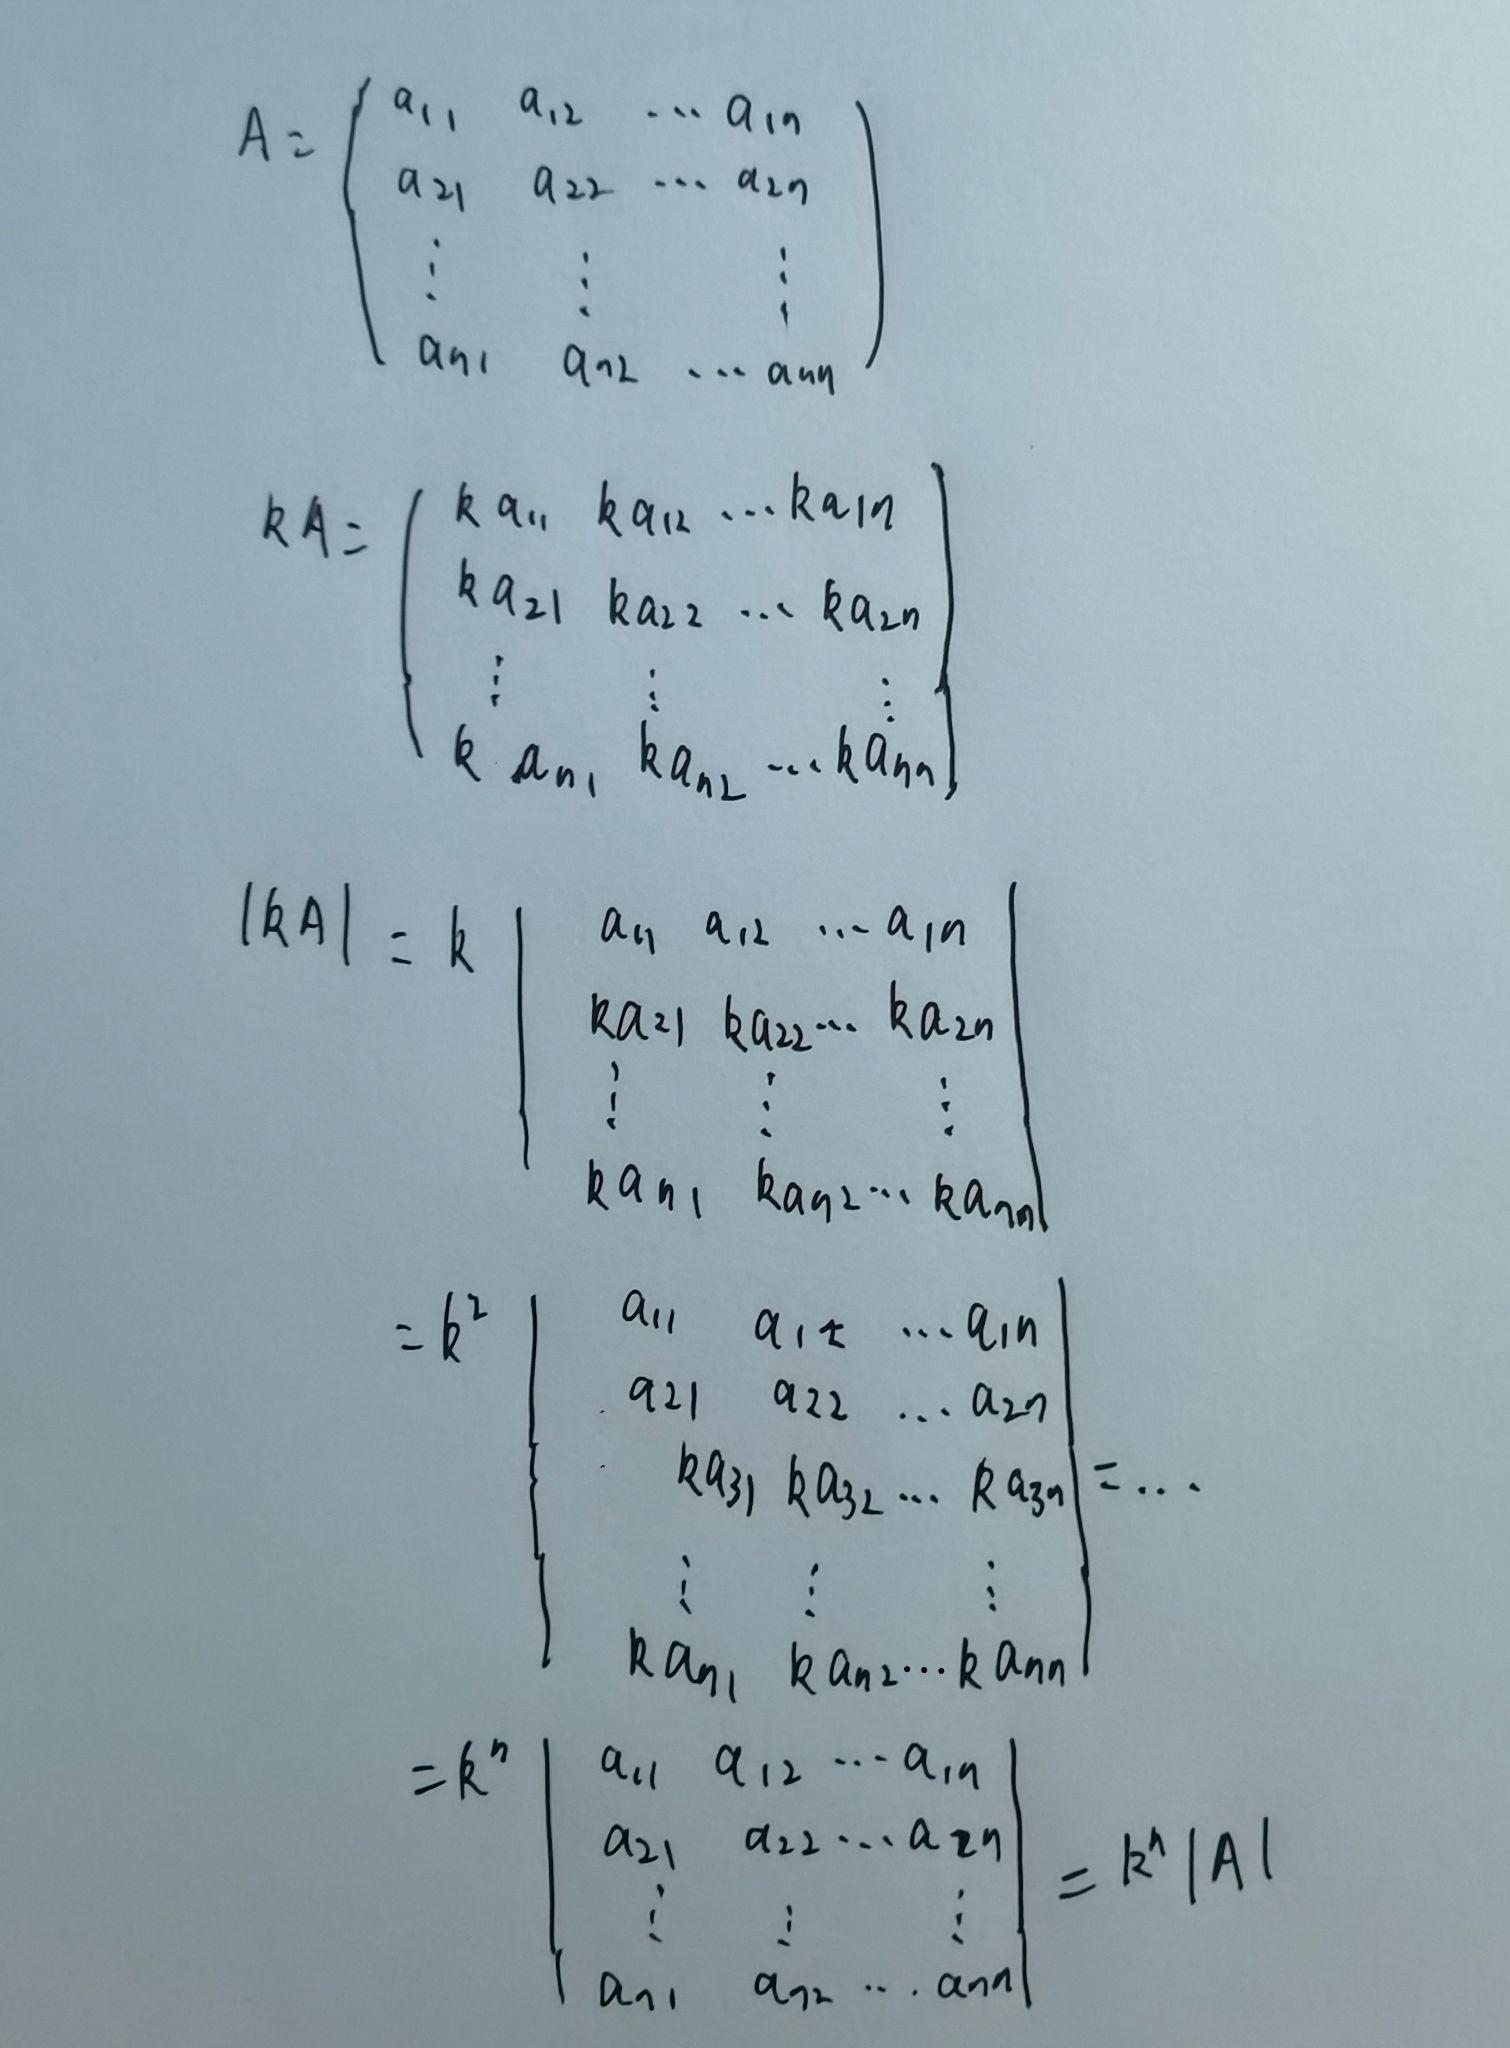 A = ( a11 a12 ... a1n
a21 a22 ... a2n
⋮ ⋮ ⋮
an1 an2 ... ann )
kA = ( ka11 ka12 ... ka1n
ka21 ka22 ... ka2n
⋮ ⋮ ⋮
kan1 kan2 ... kann )
|kA| = k | a11 a12 ... a1n
ka21 ka22 ... ka2n
⋮ ⋮ ⋮
kan1 kan2 ... kann |
= k² | a11 a12 ... a1n
a21 a22 ... a2n
ka31 ka32 ... ka3n | = ...
⋮ ⋮ ⋮
kan1 kan2 ... kann |
= kⁿ | a11 a12 ... a1n
a21 a22 ... a2n | = kⁿ |A|
⋮ ⋮ ⋮
an1 an2 ... ann |